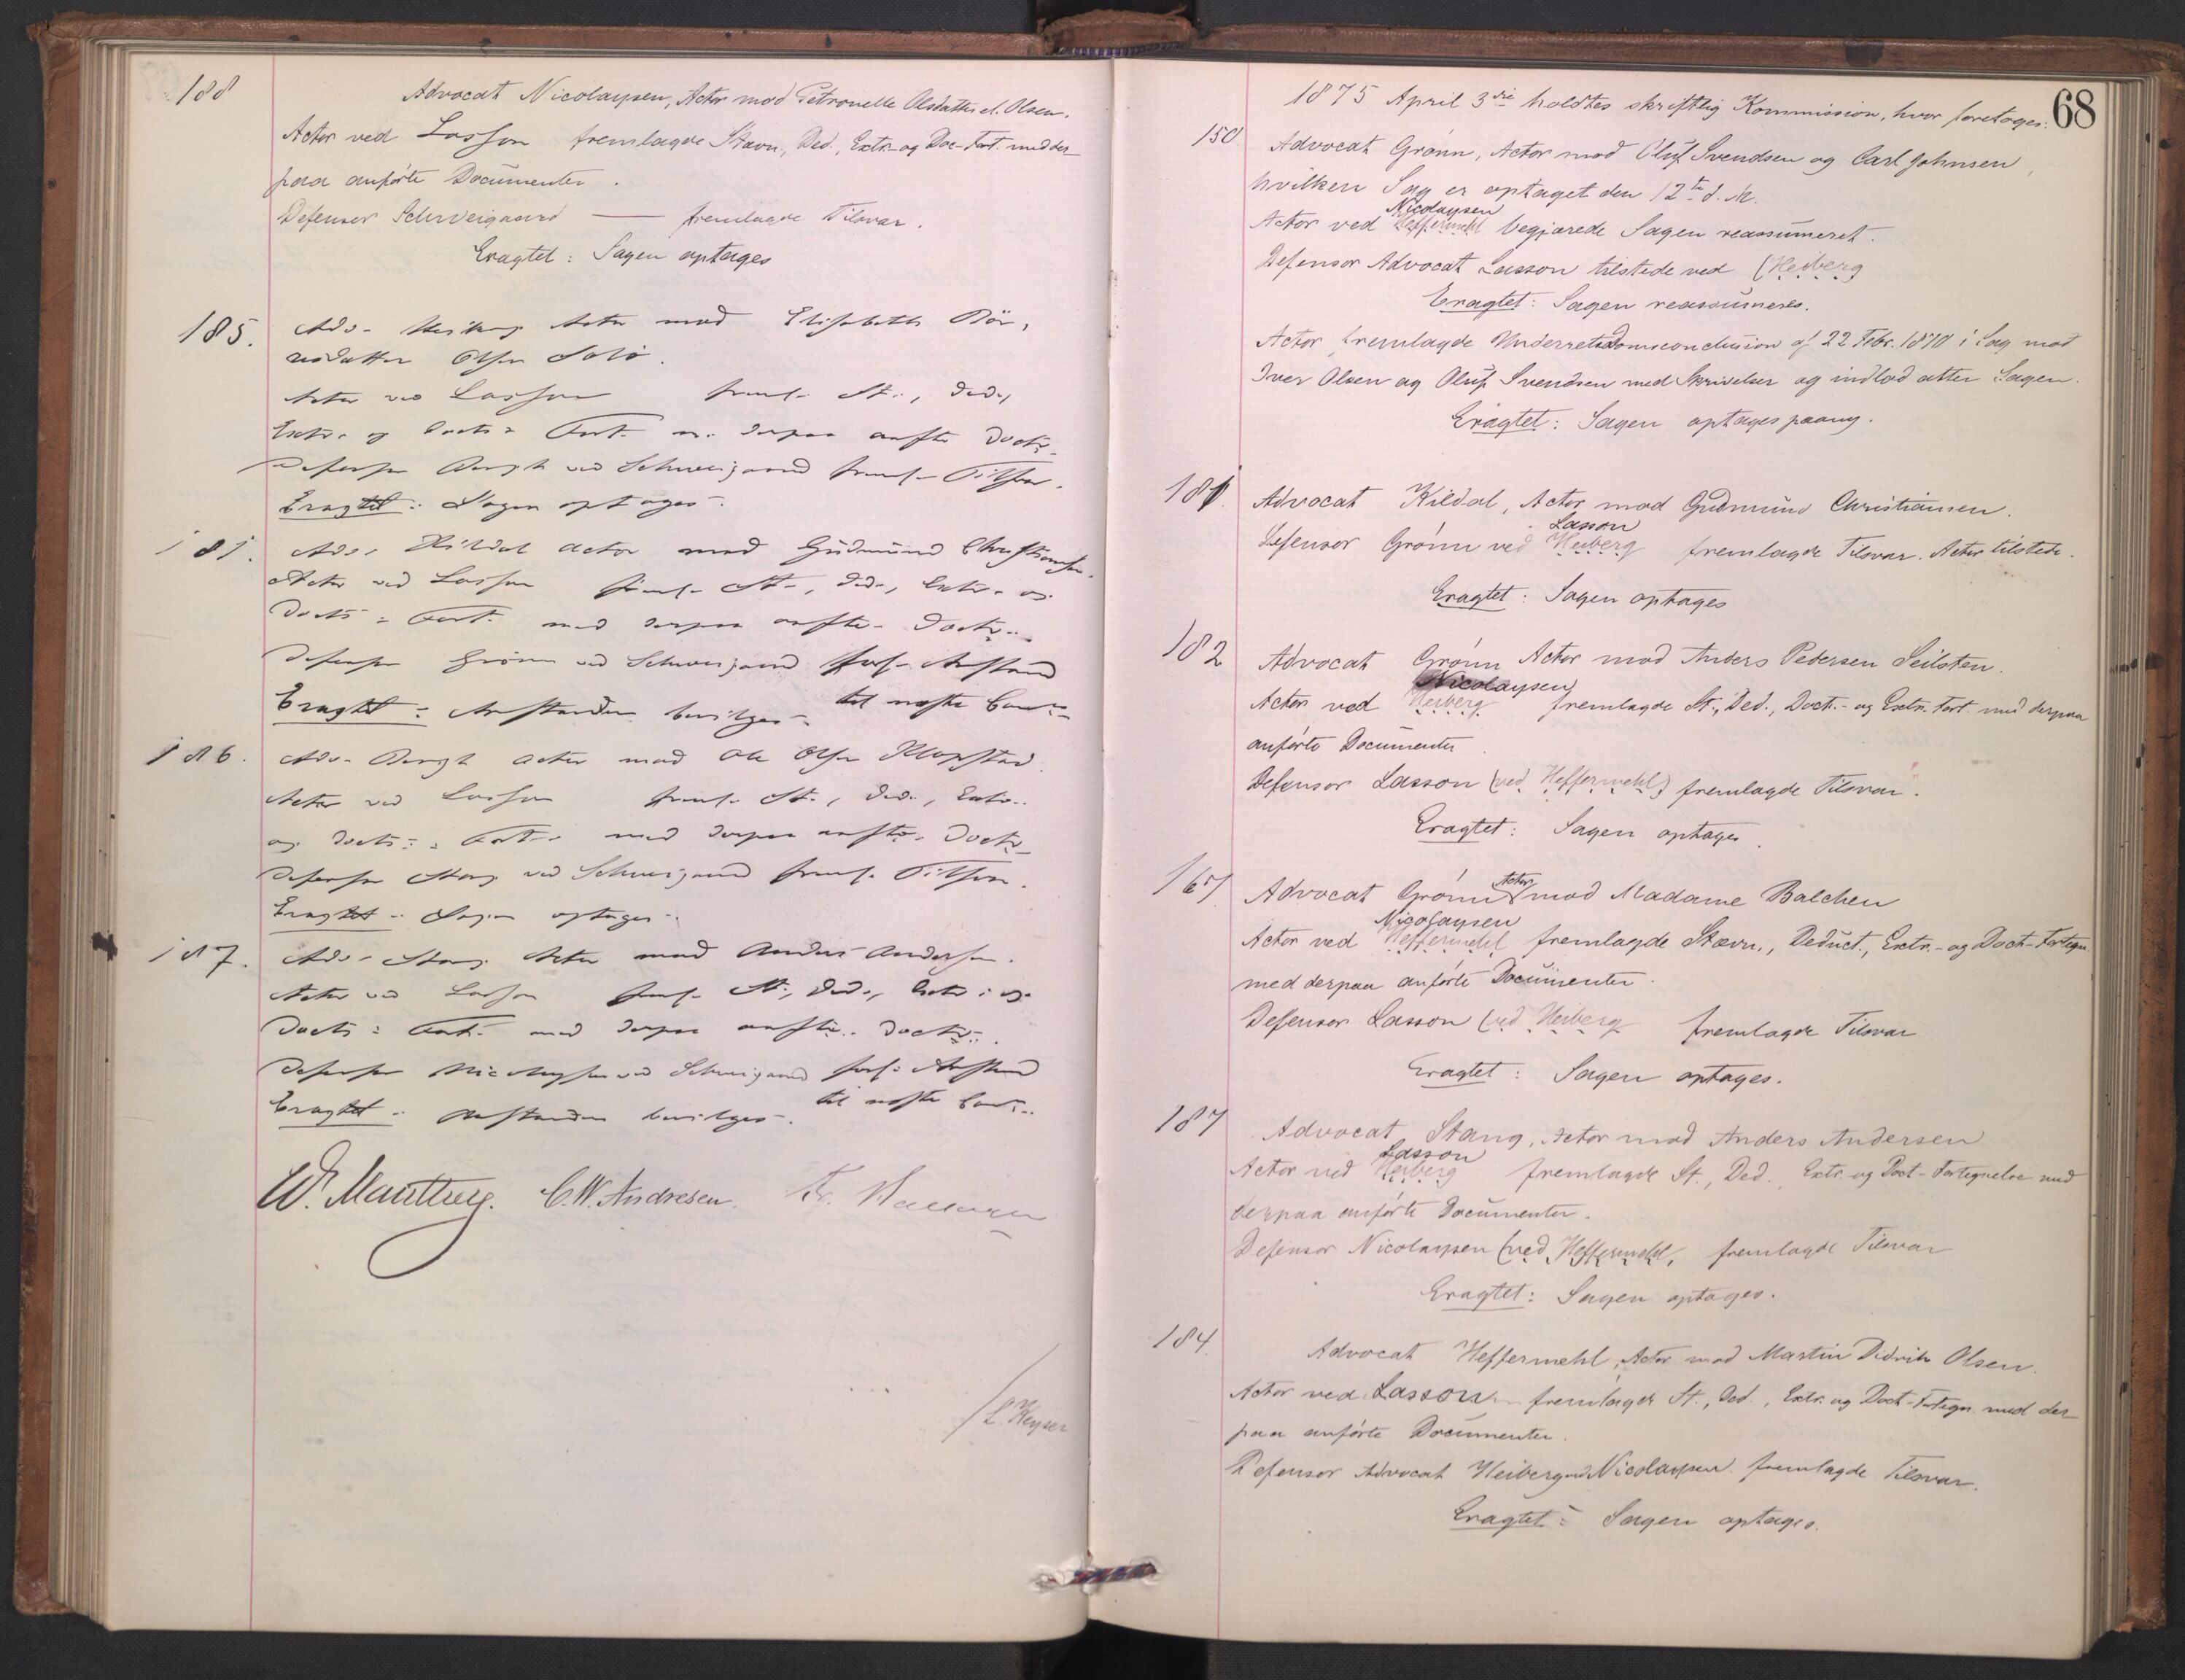 188
Advocat Nicolaysen, Actor mod Petronelle Olsdatter el. Olsen.
Actor ved Lasson fremlagde Stævn., Ded., Extr.- og Doc-Fort. med der-
paa anførte Documenter.
Defensor Schweigaard — fremlagde Tilsvar.
Eragtet: Sagen optages
185.
Adv. Actor mod Elisabeth
Olsen
Actor ved Lasson freml. St., Ded.,
Extr. og Docts- Fort. m. derpaa anfte Doctr.
Defensor Bergh ved Schweigaard freml. Tilsvar.
Eragtet: Sagen optages.
181.
Adv. Kildal Actor mod Gudmund Christiansen.
Actor ved Lasson freml. St., Ded., Extr. og
Docts- Fort. med derpaa anfte Doctr.
Defensor Grønn ved Schweigaard forl. Anstand
Eragtet: Anstanden bevilges til næste
186.
Adv. Bergh Actor mod Ole Olsen Klopstad.
Actor ved Lasson freml. St., Ded., Extr.
og Docts- Fort. med derpaa anfte Doctr.
Defensor Stang ved Schweigaard freml. Tilsvar.
Eragtet: Sagen optages.
187.
Adv. Stang Actor mod Anders Andersen.
Actor ved Lasson freml. St., Ded., Extr. og
Docts- Fort. med derpaa anfte Doctr.
Defensor Nicolaysen ved Schweigaard forl. Anstand
Eragtet: Anstanden bevilges. til næste
C.W. Andresen.
/L. Keyser
68
1875 April 3die holdtes skriftlig Kommission, hvor foretages:
150.
Advocat Grønn, Actor mod Oluf Svendsen og Carl Johnsen,
hvilken Sag er optaget den 12te d. M.
Nicolaysen
Actor ved Heffermehl begjærede Sagen reassumeret.
Defensor Advocat Lasson tilstede ved (Heiberg
Eragtet: Sagen reassumeres.
Actor fremlagde Underretsdomsconclusion af 22 Febr. 1870 i Sag mod
Iver Olsen og Oluf Svendsen med Skrivelser og indlod atter Sagen.
Eragtet: Sagen optages paany.
181.
Advocat Kildal, Actor mod Gudmund Christiansen.
Lasson
Defensor Grønn ved Heiberg fremlagde Tilsvar. Actor tilstede.
Eragtet: Sagen optages
182
Advocat Grønn Actor mod Anders Pedersen Seilsten.
Nicolaysen
Actor ved Heiberg fremlagde St., Ded., Doct.- og Extr. Fort. med derpaa
anførte Documenter
Defensor Lasson (ved Heffermehl) fremlagde Tilsvar.
Eragtet: Sagen optages.
167
Advocat Grønn Actor mod Madame Balchen
Nicolaysen
Actor ved Heffermehl fremlagde Stævn., Deduct., Extr.- og Doct-Fortegn.
med derpaa anførte Documenter.
Defensor Lasson (ved Heiberg fremlagde Tilsvar
Eragtet: Sagen optages.
187
Advocat Stang, Actor mod Anders Andersen
Lasson
Actor ved Heiberg fremlagde St., Ded. Extr. og Doct-Fortegnelse med
derpaa anførte Documenter.
Defensor Nicolaysen (ved Heffermehl, fremlagde Tilsvar
Eragtet: Sagen optages.
184.
Advocat Heffermehl, Actor mod Martin Didrik Olsen.
Actor ved Lasson fremlagde St., Ded., Extr. og Doct-Fortegn. med der-
paa anførte Documenter.
Defensor Advocat Heiberg ved Nicolaysen fremlagde Tilsvar.
Eragtet: Sagen optages.